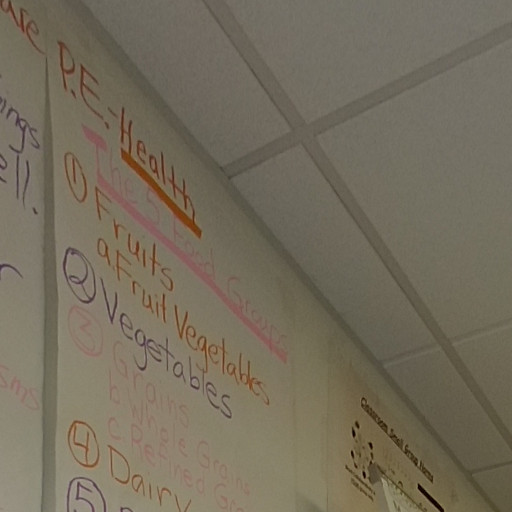 are
P.E.-Health
ings
ell.
The 5 Food Groups
① Fruits
a. Fruit Vegetables
② Vegetables
③ Grains
b. Whole Grains
c. Refined Gra
④ Dairy
⑤
sms
Classroom Small Group